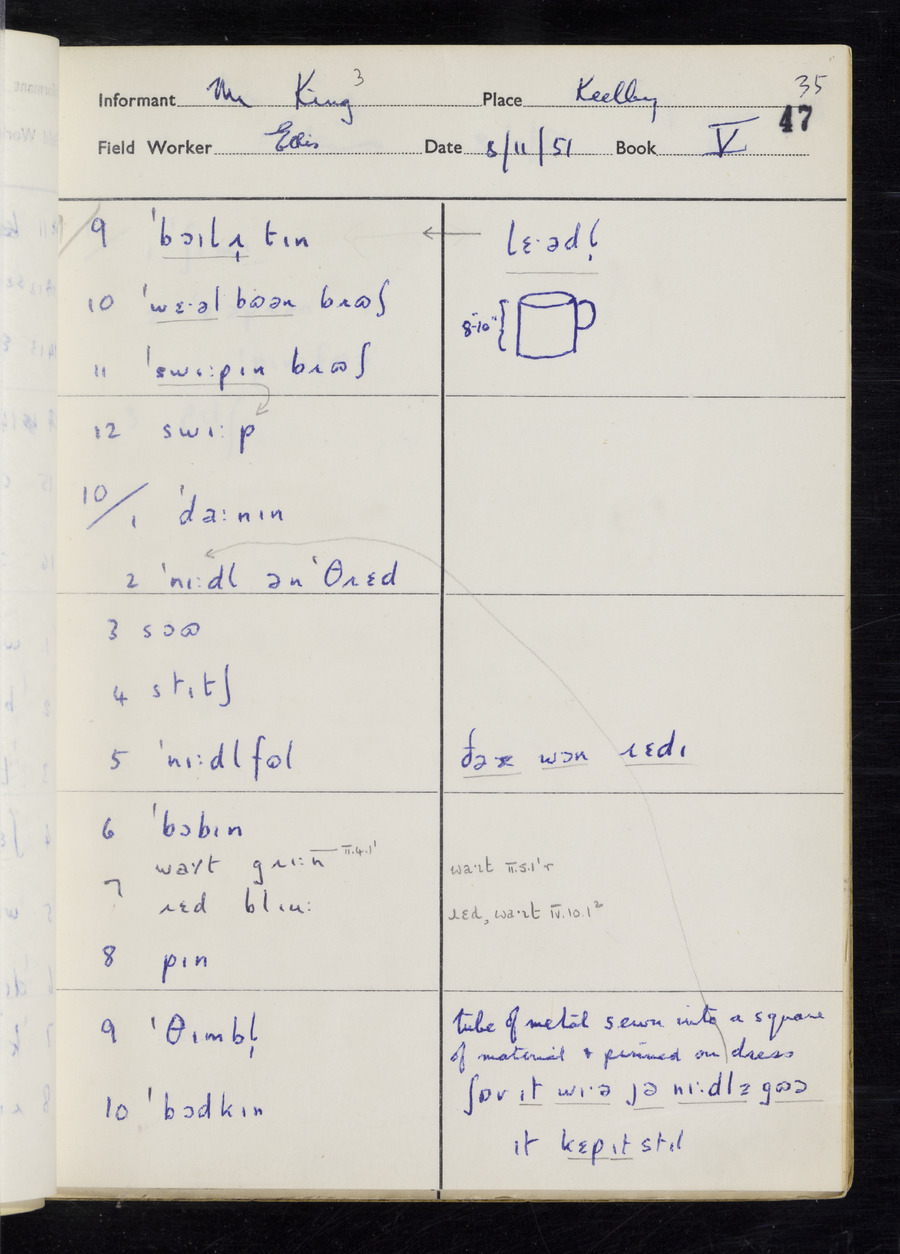 35
Informant Mr King³ Place Keelby
47
Field Worker Ellis Date 8/11/51 Book V
9 ˈbɔɪlɹ̩ tɪn ← lɛ·ədl̩
10 ˈwɛ·əl bɷən bɹɷʃ 8"-10"
11 ˈswɪ:pɪn bɹɷʃ
12 swɪ:p
10/1 ˈdaːnɪn
2 ˈnɪ:dl ən ˈθɹɛd
3 sɔɷ
4 stɪtʃ
5 ˈnɪ:dlfəl wɔn ɹɛdɪ
6 ˈbɔbɪn
7 waɪt gɹɪ:n II.4.1' wa·ɪt II.5.1'r
ɹɛd blɪu: ɹɛd, wa·ɪt IV.10.1²
8 pɪn
9 ˈθɪmbl̩ tube of metal sewn into a square
of material & pinned on dress
10 ˈbɔdkɪn ʃɒv ɪt wɪə jə nɪ:dlz gɷə
ɪt kɛp ɪt stɪl